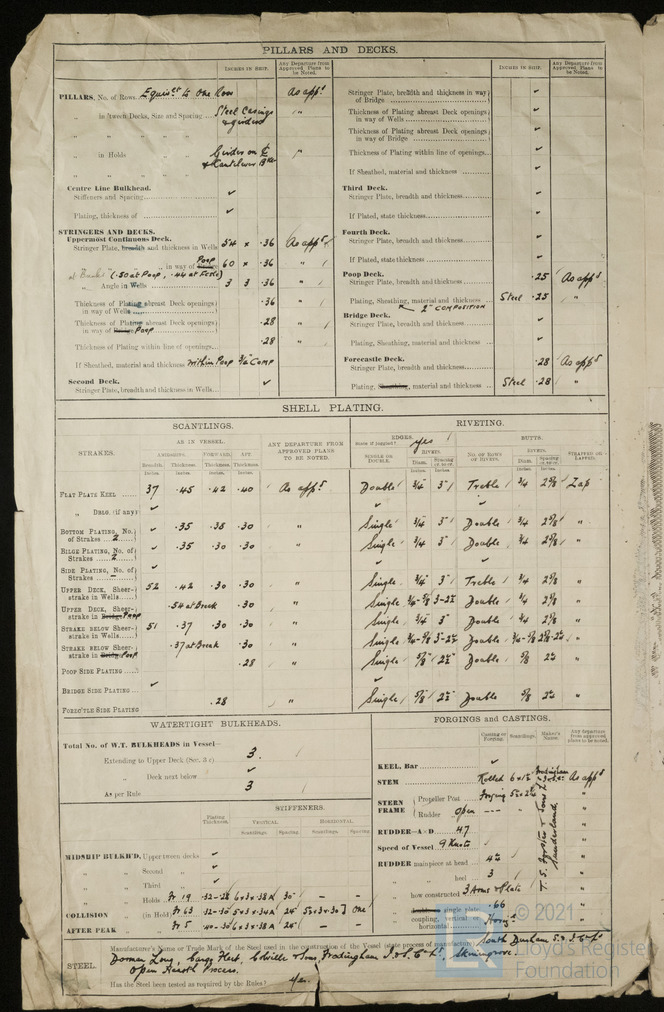 PILLARS AND DECKS.
INCHES IN SHIP.
Any Departure from Approved Plans to be Noted.
PILLARS, No. of Rows. Equivt to one Row As appd
in 'tween Decks, Size and Spacing Steel Casings & girders "
" " "
" in Holds " Girders on ℄ & Cantilever Bkts "
Centre Line Bulkhead.
Stiffeners and Spacing ✓
Plating, thickness of ✓
STRINGERS AND DECKS.
Uppermost Continuous Deck.
Stringer Plate, breadth and thickness in Wells 54 × .36 As appd
" " in way of Bridge Poop 60 × .36 "
at Breaks (.50 at Poop, .44 at Fcsle)
" Angle in Wells 3 3 .36 "
Thickness of Plating abreast Deck openings in way of Wells .36 "
Thickness of Plating abreast Deck openings in way of Bridge Poop .28 "
Thickness of Plating within line of openings .28 "
If Sheathed, material and thickness within Poop Comp
Second Deck.
Stringer Plate, breadth and thickness in Wells ✓
INCHES IN SHIP.
Any Departure from Approved Plans to be Noted.
Stringer Plate, breadth and thickness in way of Bridge ✓
Thickness of Plating abreast Deck openings in way of Wells ✓
Thickness of Plating abreast Deck openings in way of Bridge ✓
Thickness of Plating within line of openings ✓
If Sheathed, material and thickness ✓
Third Deck.
Stringer Plate, breadth and thickness ✓
If Plated, state thickness ✓
Fourth Deck.
Stringer Plate, breadth and thickness ✓
If Plated, state thickness ✓
Poop Deck.
Stringer Plate, breadth and thickness .25 As appd
Plating, Sheathing, material and thickness Steel .25 "
2" COMPOSITION
Bridge Deck.
Stringer Plate, breadth and thickness ✓
Plating, Sheathing, material and thickness ✓
Forecastle Deck.
Stringer Plate, breadth and thickness .28 As appd
Plating, Sheathing, material and thickness Steel .28 "
SHELL PLATING.
SCANTLINGS.
STRAKES.
AS IN VESSEL.
AMIDSHIPS. FORWARD. AFT.
Breadth. Thickness. Thickness. Thickness.
Inches. Inches. Inches. Inches.
ANY DEPARTURE FROM APPROVED PLANS TO BE NOTED.
RIVETING.
EDGES. State if joggled? yes
SINGLE OR DOUBLE.
RIVETS.
Diam. Spacing cr. to cr.
BUTTS.
NO. OF ROWS OF RIVETS.
RIVETS.
Diam. Spacing cr. to cr.
STRAPPED OR LAPPED.
FLAT PLATE KEEL 37 .45 .42 .40 As appd Double 3/4 3" Treble 3/4 2 5/8 Lap
" DBLG. (if any) ✓
BOTTOM PLATING, No. of Strakes 2 ✓ .35 .35 .30 " Single 3/4 3" Double 3/4 2 5/8 "
BILGE PLATING, No. of Strakes 2 ✓ .35 .30 .30 " Single 3/4 3 Double 3/4 2 5/8 "
SIDE PLATING, No. of Strakes – ✓
UPPER DECK, Sheer-strake in Wells 52 .42 .30 .30 " Single 3/4 3" Treble 3/4 2 5/8 "
UPPER DECK, Sheer-strake in Bridge Poop .54 at Break .30 " Single 3/4-5/8 3-2½ Double 3/4 2 5/8 "
STRAKE BELOW Sheer-strake in Wells 51 .37 .30 .30 " Single 3/4 3" Double 3/4 2 5/8 "
STRAKE BELOW Sheer-strake in Bridge Poop .37 at Break .30 " Single 3/4-5/8 3-2½ Double 3/4-5/8 "
POOP SIDE PLATING .28 " Single 5/8 2½ Double 5/8 "
BRIDGE SIDE PLATING ✓
FORE'TLE SIDE PLATING .28 " Single 5/8 2½ Double 5/8 "
WATERTIGHT BULKHEADS.
Total No. of W.T. BULKHEADS in Vessel—
Extending to Upper Deck (Sec. 3 c) 3.
" Deck next below ✓
As per Rule 3
STIFFENERS.
Plating Thickness.
VERTICAL
HORIZONTAL.
Scantlings. Spacing Scantlings. Spacing
MIDSHIP BULKH'D, Upper tween decks ✓
" " Second " ✓
" " Third " ✓
" " Holds Fr 19 .32-.28 30" – –
COLLISION " (in Hold) Fr 63 24" one
AFTER PEAK " " Fr 5 24" – –
FORGINGS and CASTINGS.
Casting or Forging. Scantlings. Maker's Name. Any departure from approved plans to be noted.
KEEL, Bar ✓
STEM Rolled As appd
STERN FRAME
Propeller Post Forging "
Rudder " Open --- "
RUDDER—A × D 47
Speed of Vessel 9 Knots
RUDDER mainpiece at head "
" " heel 3 "
" how constructed 3 Arms & Plate "
single plate .66 "
coupling, vertical or horizontal Horizl "
T. S. Forster & Sons Ltd Sunderland.
STEEL.
Manufacturer's Name or Trade Mark of the Steel used in the construction of the Vessel (state process of manufacture) South Durham S. & I. Co Ld
Dorman Long, Cargo Fleet, Colville & Sons, Frodingham I. & S. Co Ld, Skinningrove.
Open Hearth Process.
Has the Steel been tested as required by the Rules? Yes.
© 2021
Lloyd's Register
Foundation